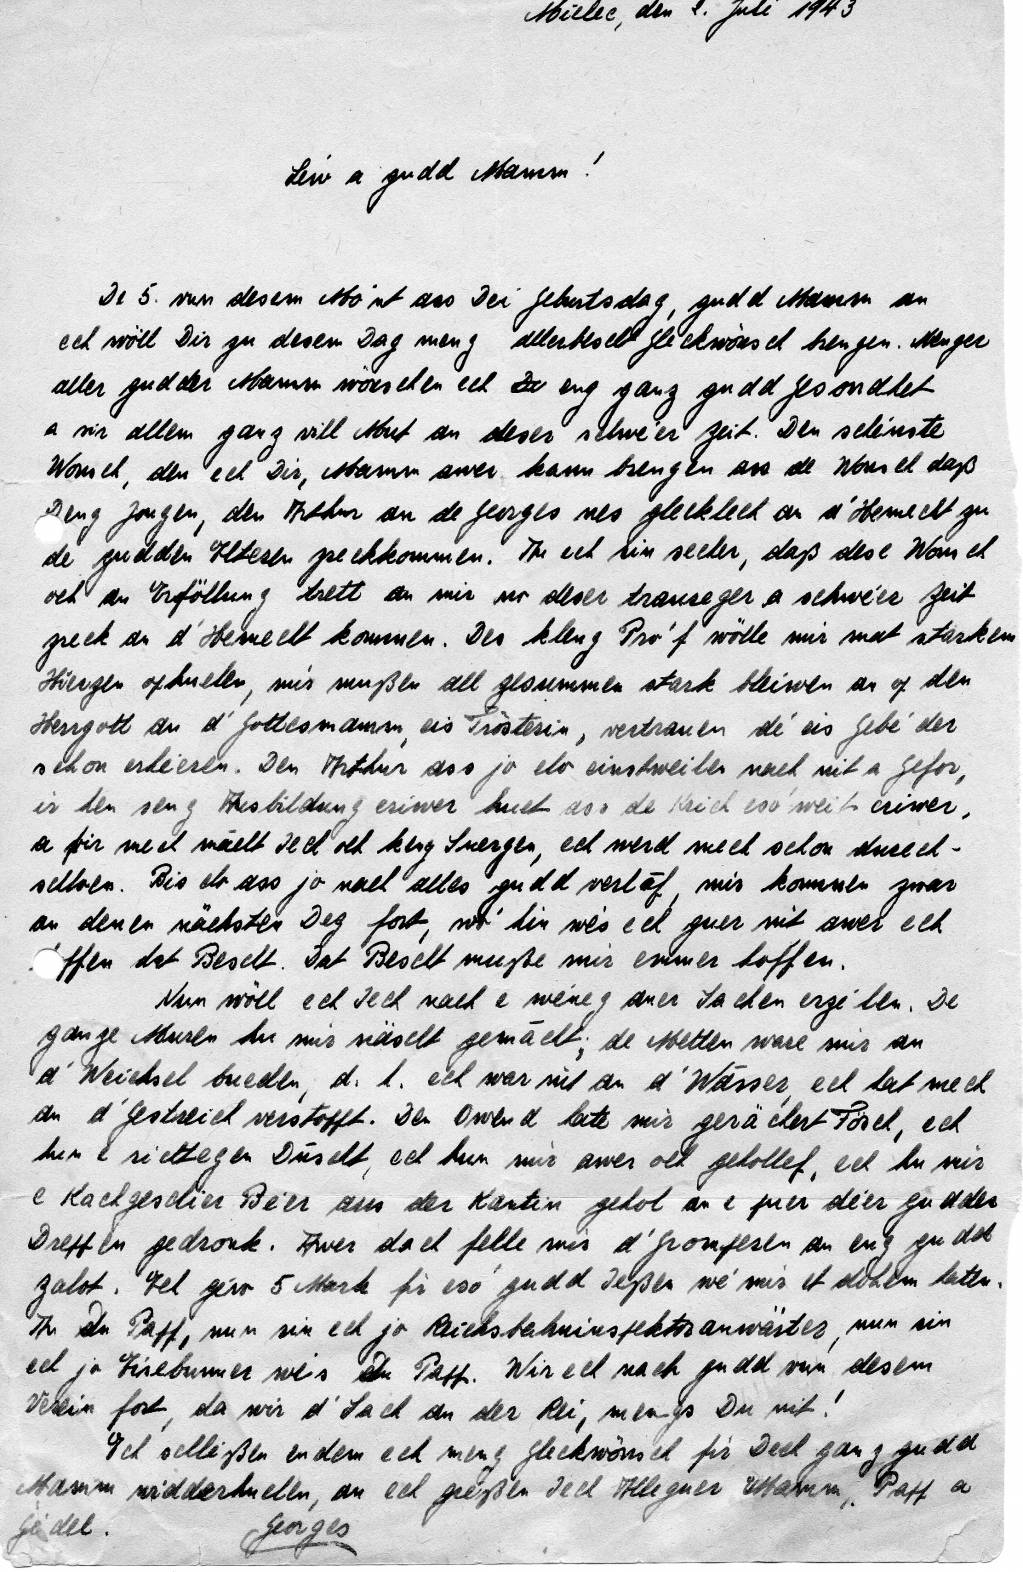 Mielec, den 2. Juli 1943
Léiw a gudd Mamm!
De 5. vun desem Mo'nt ass Dei Geburtsdag, gudd Mamm an
ech wöll Dir zu desem Dag meng allerbescht Gleckwönsch brengen. Menger
aller gudder Mamm wönschen ech eng ganz gudd Gesondhet
a vir allem ganz vill Mut an deser schwe'er Zeit. Den sche'nste
Wonsch, den ech Dir, Mamm awer kann brengen ass de Wonsch daß
Deng Jongen, den Arthur an de Georges nes glecklech an d'Hemecht zu
de gudden Elteren zreckkommen. An ech sin secher, daß dese Wonsch
och an Erföllung trett an mir no deser traureger a schwe'er Zeit
zreck an d'Hemecht kommen. Des kleng Pro'f wölle mir mat starkem
Hierzen ophuelen, mir mußen all zesummen stark bleiwen an op den
Herrgott an d'Gottesmamm, eis Trösterin, vertrauen de' eis Gebe'der
schon erhéieren. Den Arthur ass jo elo einstweilen nach nit a Gefor,
ir hen seng Ausbildung eriwer huet ass de Krich eso' weit eriwer,
a fir mech mächt Iech och keng Suergen, ech werd mech schon durech-
schloen. Bis elo ass jo nach alles gudd verlaf, mir kommen zwar
an denen nächsten Deg fort, wo' hin wés ech guer nit awer ech
hoffen dat Bescht. Dat Bescht muße mir emmer hoffen.
Nun wöll ech Iech nach e wéneg aner Sachen erzé'len. De
ganze Muren hu mir näscht gemächt; de Metten ware mir an
d'Weichsel bueden, d. h. ech war nit an d'Wässer, ech hat mech
an d'Gestreich verstoppt. Den Owend hate mir gerächert Fösch, ech
hun e richtegen Duscht, ech hun mir awer och gehollef, ech hu mir
e Kachgeschier Be'er aus der Kantin geholl an e puer de'er gudder
Dreppen gedronk. Awer dach felle mir d'Gromperen an eng gudd
Zalot. Ech géw 5 Mark fir eso' gudd Ießen we' mir et dohem haten.
An Du Papp, nun sin ech jo Reichsbahninspektoranwärter, nun sin
ech jo Eisebunner wé's Du Papp. Wir ech nach gudd vun desem
Verein fort, da wir d'Sach an der Rei, mengs Du nit!
Ech schließen endem ech meng Gleckwönsch fir Dech ganz gudd
Mamm widderhuelen, an ech gréßen Iech Alleguer Mamm, Papp a
Géidel.
Georges